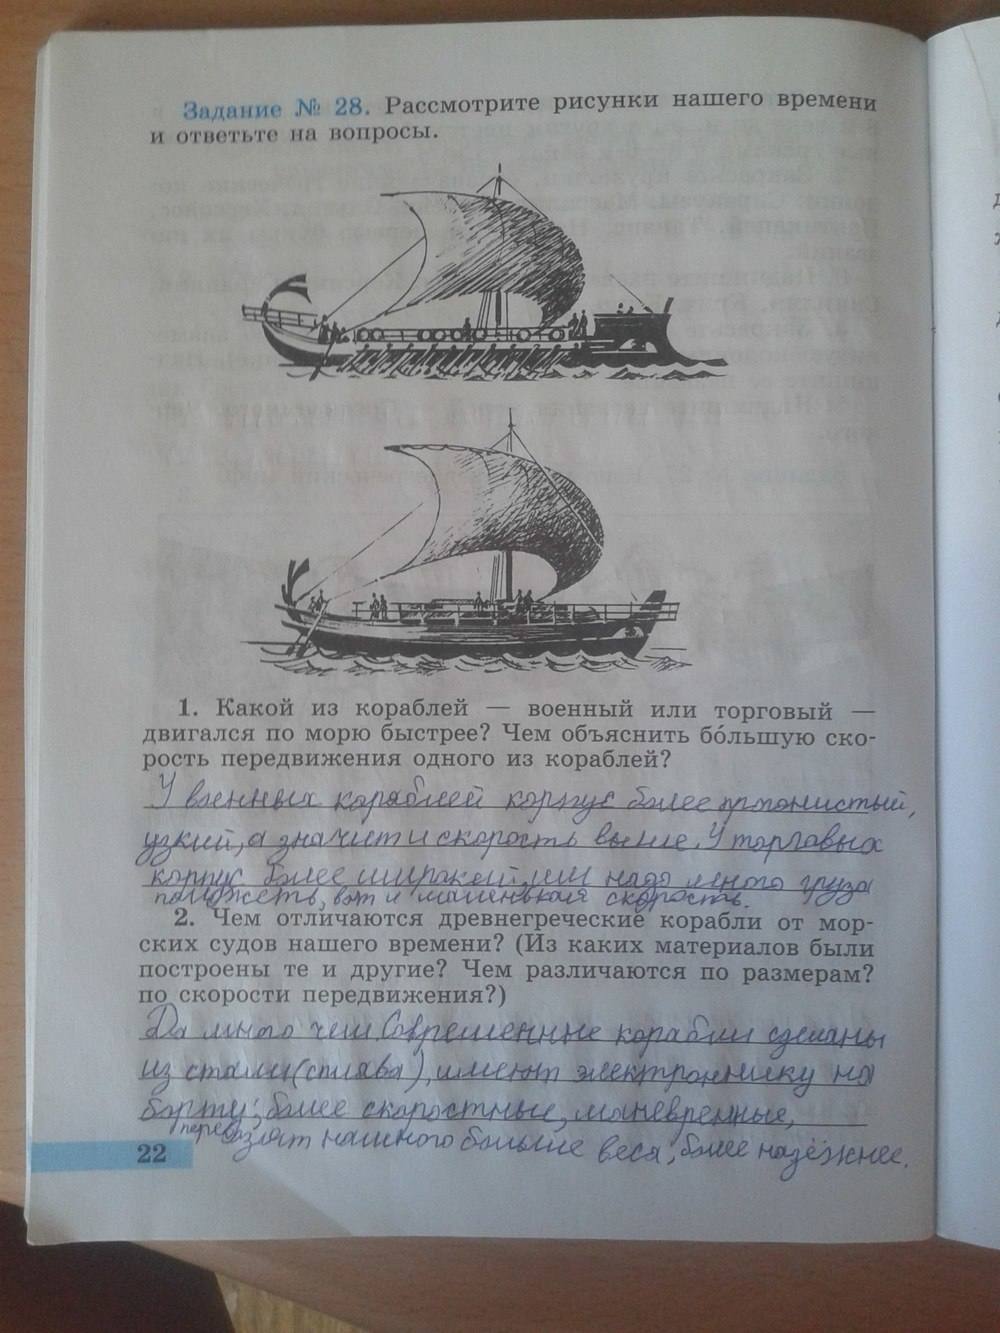 Задание № 28. Рассмотрите рисунки нашего времени
и ответьте на вопросы.
1. Какой из кораблей — военный или торговый —
двигался по морю быстрее? Чем объяснить бо́льшую ско-
рость передвижения одного из кораблей?
У военных кораблей корпус более
узкий, а значит и скорость выше. У торговых
корпус более широкой, им надо много груза
вот и маленькая скорость.
2. Чем отличаются древнегреческие корабли от мор-
ских судов нашего времени? (Из каких материалов были
построены те и другие? Чем различаются по размерам?
по скорости передвижения?)
Да много чем. Современные корабли сделаны
из стали (сплава), имеют электроннику на
борту; более скоростные, маневренные,
перевозят намного больше веса, более надёжнее.
22